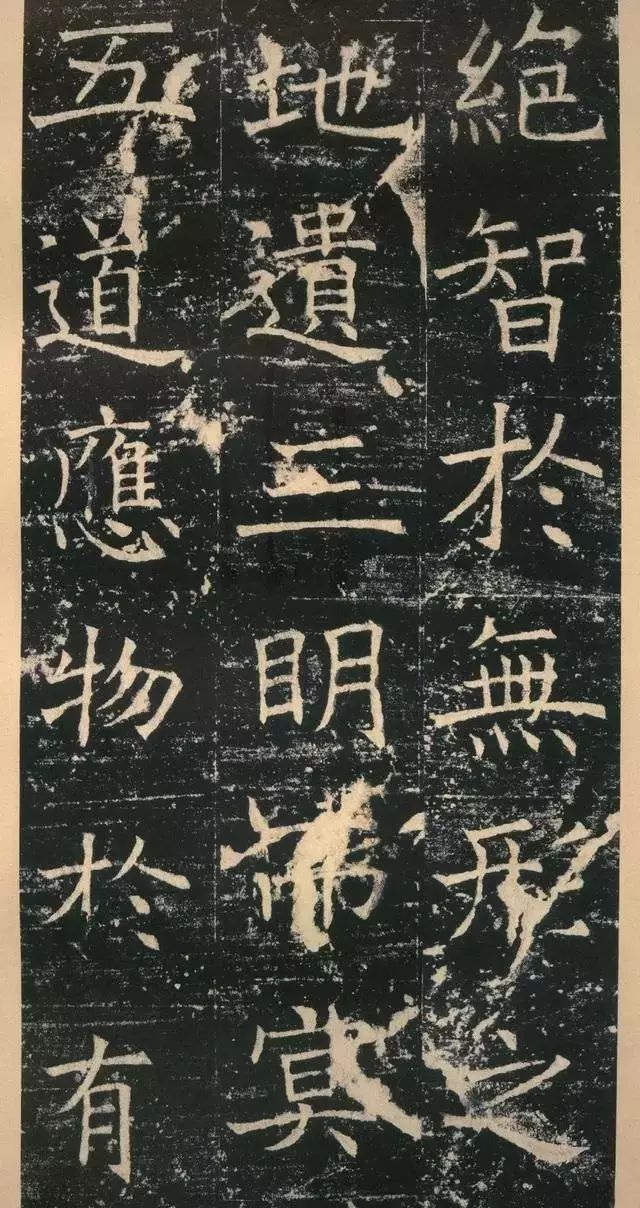 絶智於無形之
地遺三明歸冥
五道應物於有